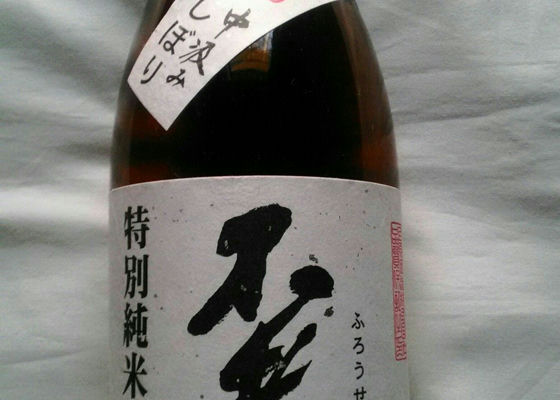 中汲み
しぼり
特別純米
不
ふろうせ